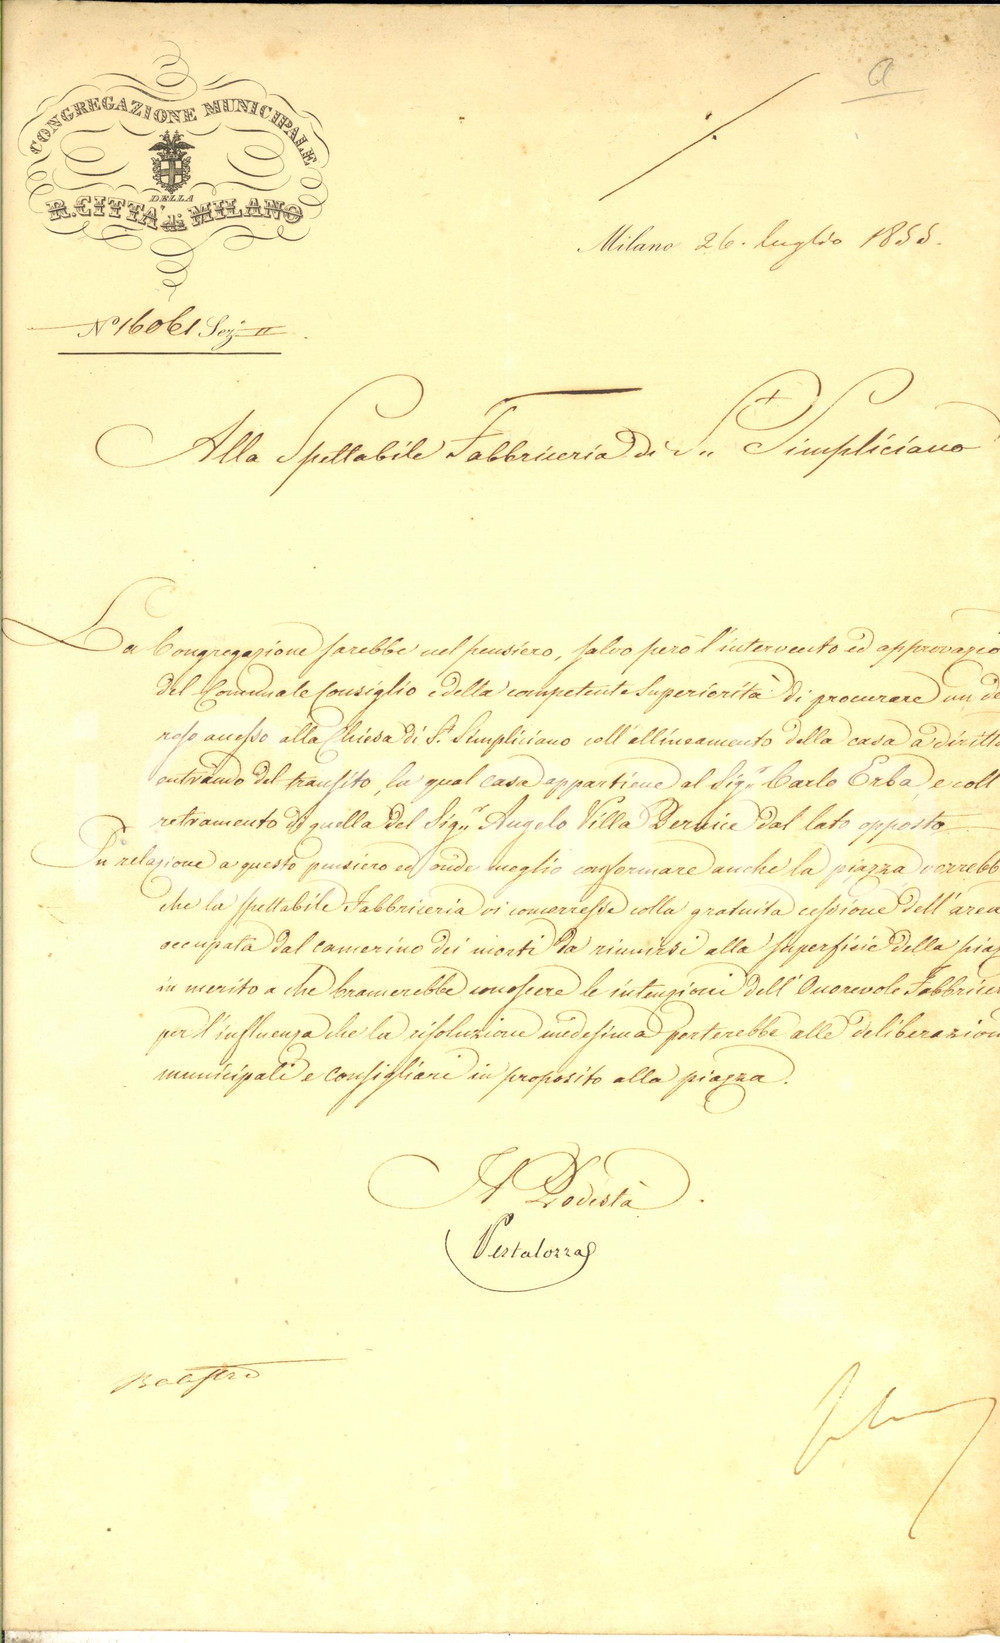 a
CONGREGAZIONE MUNICIPALE
DELLA
R. CITTA' di MILANO
Milano 26. luglio 1855.
N° 16061 Sez. II
Alla Spettabile Fabbriceria di S. Simpliciano
La Congregazione sarebbe nel pensiero, salvo però l'intervento ed approvazio
del Comunale Consiglio e della competente Superiorità di procurare un de
coroso accesso alla Chiesa di St. Simpliciano coll'allineamento della casa a diritta
entrando del transito, la qual casa appartiene al Sigr. Carlo Erba, e coll'
retramento di quella del Sigr. Angelo Villa Pernice dal lato opposto
In relazione a questo pensiero ed onde meglio conformare anche la piazza vorrebb
che la Spettabile Fabbriceria vi concorresse colla gratuita cessione dell'area
occupata dal camerino dei morti da riunirsi alla superficie della piaz
in merito a che bramerebbe conoscere le intenzioni dell'Onorevole Fabbricer
per l'influenza che la risoluzione medesima porterebbe alle deliberazion
municipali e consigliari in proposito alla piazza.
Il Podestà
Pestalozza